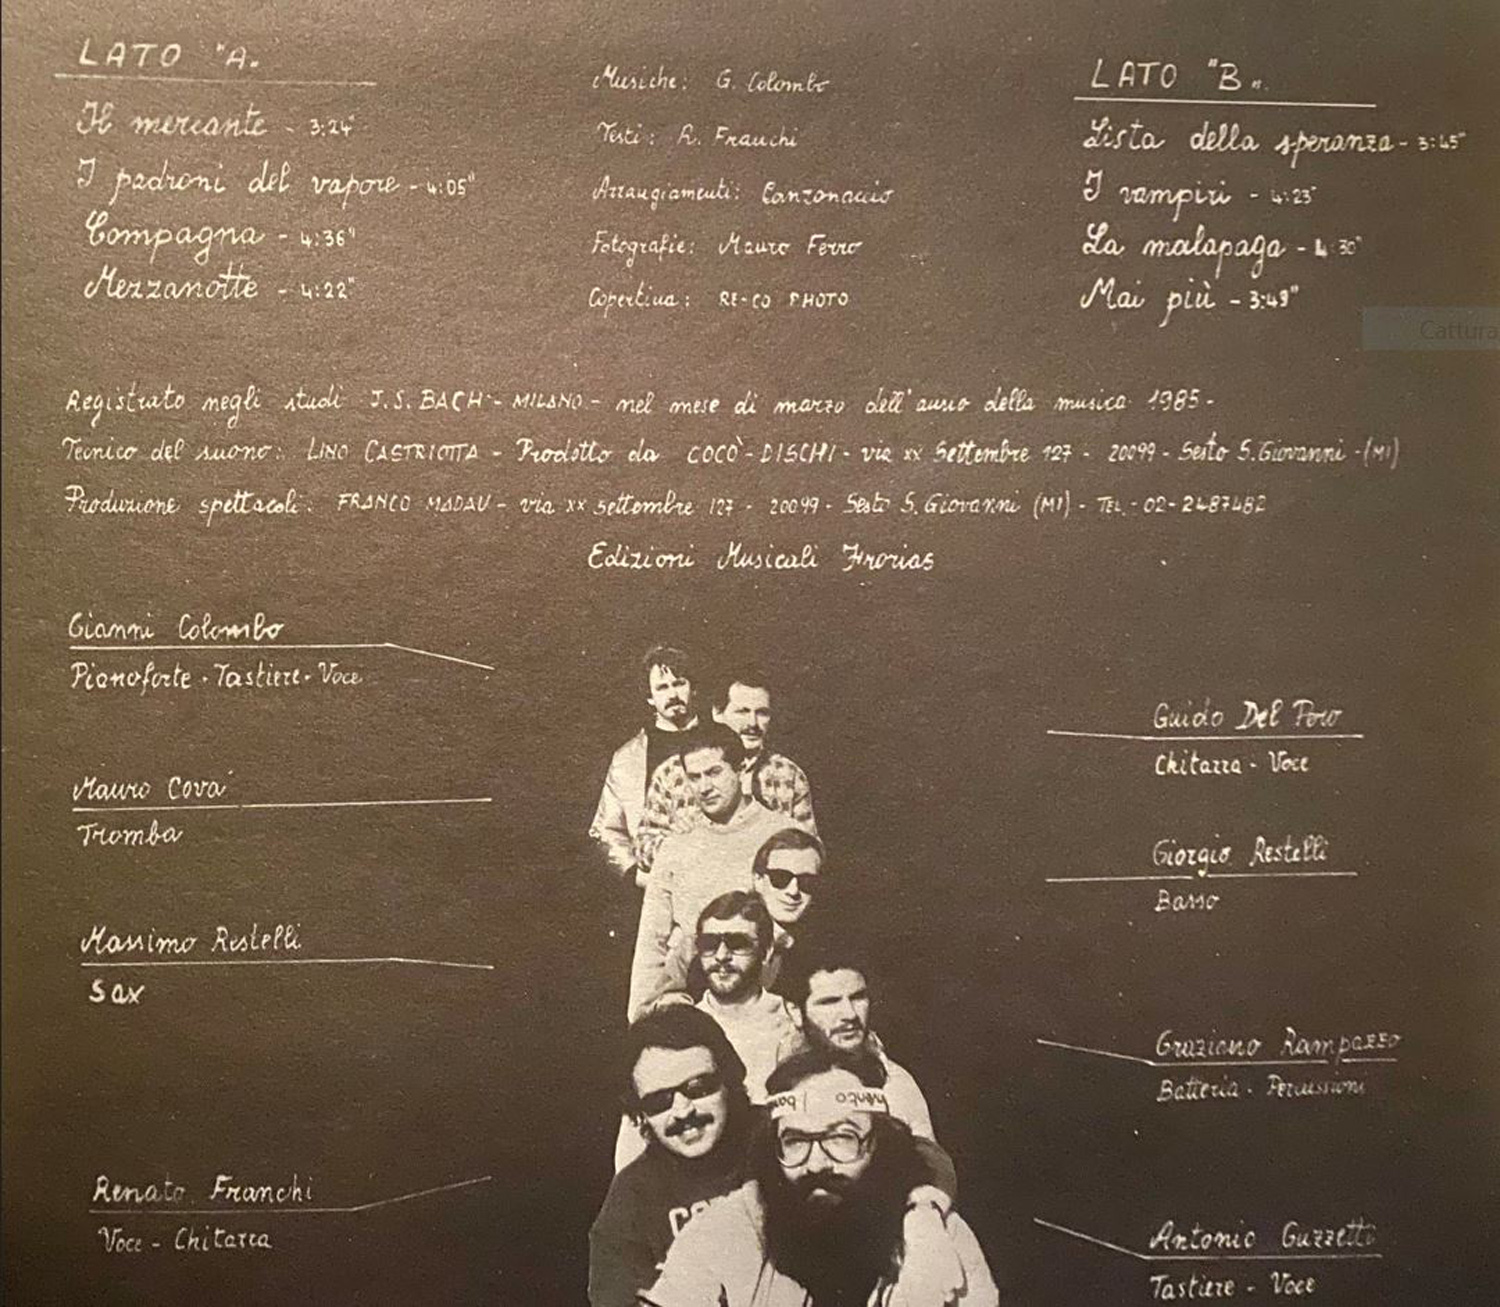 LATO "A„
Il mercante - 3:24"
I padroni del vapore - 4:05"
Compagna - 4:36"
Mezzanotte - 4:22"
Musiche: G. Colombo
Testi: R. Franchi
Arrangiamenti: Canzonaccio
Fotografie: Mauro Ferro
Copertina: RE-CO PHOTO
LATO "B„
Lista della speranza - 3:45"
I vampiri - 4:23"
La malapaga - 4:30"
Mai più - 3:49"
Registrato negli studi J.S. BACH - MILANO - nel mese di marzo dell'anno della musica 1985 -
Tecnico del suono: LINO CASTRIOTTA - Prodotto da COCÒ - DISCHI - via XX Settembre 127 - 20099 - Sesto S. Giovanni - (MI)
Produzione spettacoli: FRANCO MADAU - via XX settembre 127 - 20099 - Sesto S. Giovanni (MI) - TEL. - 02 - 2487482
Edizioni Musicali Frorias
Gianni Colombo
Pianoforte - Tastiere - Voce
Mauro Cova'
Tromba
Massimo Restelli
Sax
Renato Franchi
Voce - Chitarra
Guido Del Poro
Chitarra - Voce
Giorgio Restelli
Basso
Graziano Rampazzo
Batteria - Percussioni
Antonio Guzzetti
Tastiere - Voce
Cattura